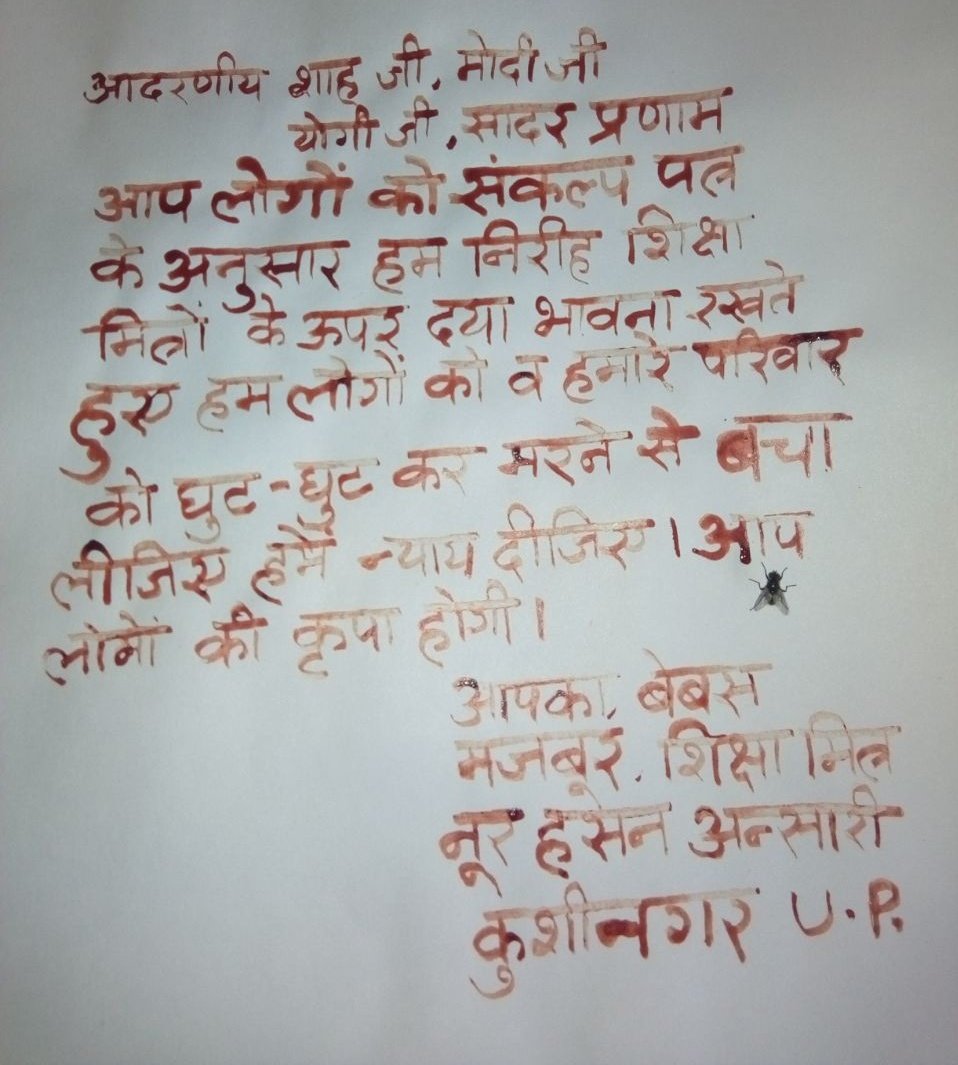 आदरणीय शाह जी, मोदी जी
योगी जी, सादर प्रणाम
आप लोगों को संकल्प पत्र
के अनुसार हम निरीह शिक्षा
मित्रों के ऊपर दया भावना रखते
हुए हम लोगों को व हमारे परिवार
को घुट-घुट कर मरने से बचा
लीजिए हमें न्याय दीजिए। आप
लोगों की कृपा होगी।
आपका, बेबस
मजबूर, शिक्षा मित्र
नूर हसन अन्सारी
कुशीनगर U.P.